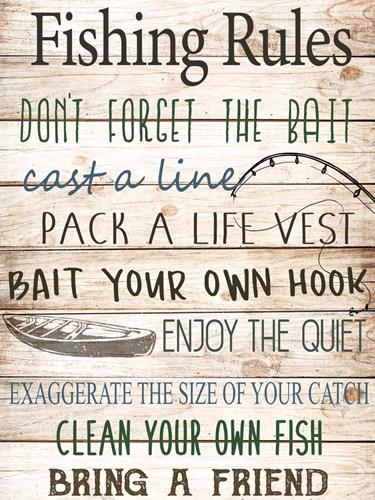 Fishing Rules
DON'T FORGET THE BAIT
cast a line
PACK A LIFE VEST
BAIT YOUR OWN HOOK
ENJOY THE QUIET
EXAGGERATE THE SIZE OF YOUR CATCH
CLEAN YOUR OWN FISH
BRING A FRIEND